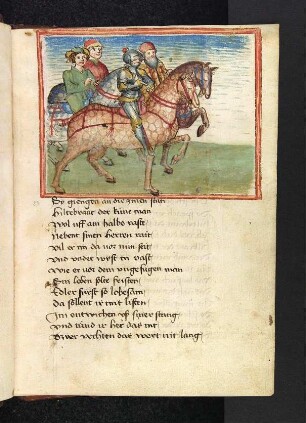 Do giengen an die zinen statt
Hiltebrant der küne man
Wol uff ain halbe rast
Nebent sinen herren rait
wil er im da vor nun seit
Vnd vnder wyst in vast
Wie er vor dem vngefügen man
Sin leben sölte fristen
Edler fürst so lobesam
Da söllent ir mit listen
Im entwichen vff siner stang
Vnd rand ir her das nit
Ewer vechten das wert nit lang